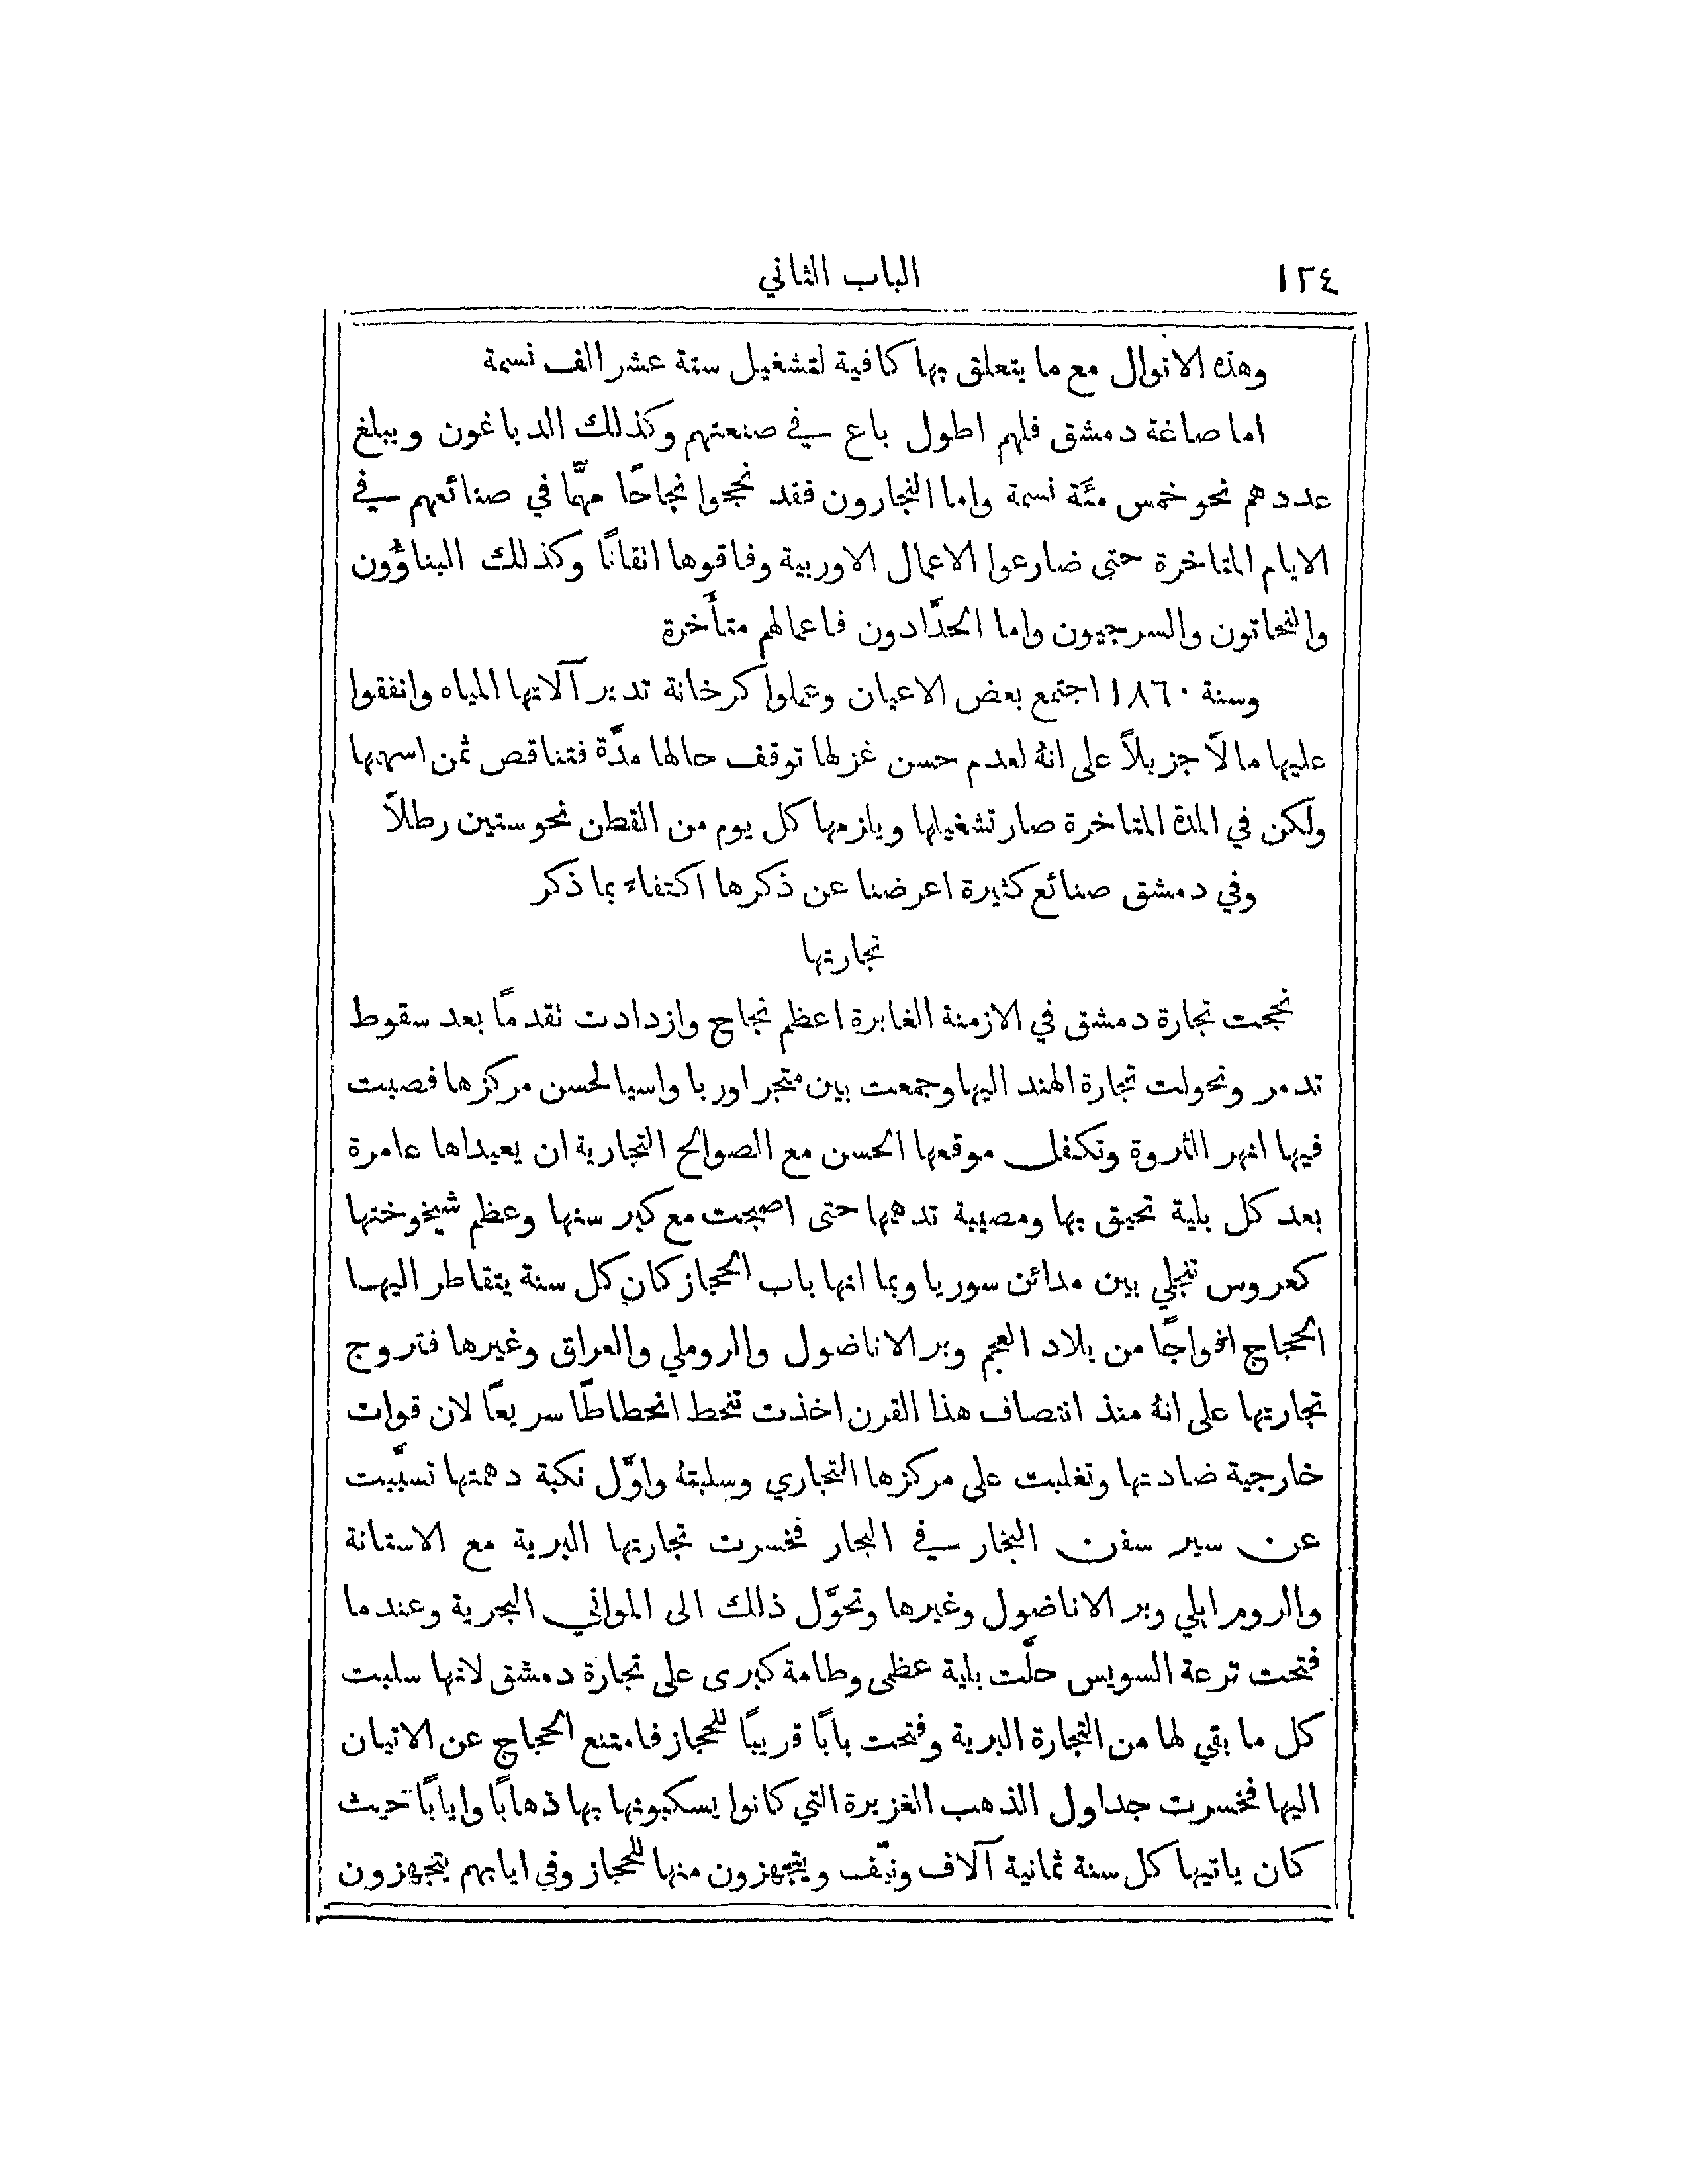 ١٢٤ الباب الثاني
وهذه الانوال مع ما يتعلق بها كافية لتشغيل ستة عشر الف نسمة
اما صاغة دمشق فلهم اطول باع في صنعتهم وكذلك الدباغون ويبلغ
عددهم نحو خمس مئة نسمة واما النجارون فقد نجحوا نجاحًا مهمًّا في صنائعهم في
الايام المتاخرة حتى ضارعوا الاعمال الاوربية وفاقوها اتقانًا وكذلك البناؤُون
والنحاتون والسرجيون واما الحدَّادون فاعمالهم متأخرة
وسنة ١٨٦٠ اجتمع بعض الاعيان وعملوا كرخانة تدير آلاتها المياه وانفقوا
عليها مالًا جزيلًا على انهُ لعدم حسن غزلها توقف حالها مدَّة فتناقص ثمن اسهمها
ولكن في المدة المتاخرة صار تشغيلها ويلزمها كل يوم من القطن نحو ستين رطلًا
وفي دمشق صنائع كثيرة اعرضنا عن ذكرها اكتفاءً بما ذكر
تجارتها
نجحت تجارة دمشق في الازمنة الغابرة اعظم نجاح وازدادت تقدمًا بعد سقوط
تدمر وتحولت تجارة الهند اليها وجمعت بين متجر اوربا واسيا لحسن مركزها فصبت
فيها انهر الثروة وتكفل موقعها الحسن مع الصوالح التجارية ان يعيداها عامرة
بعد كل بلية تحيق بها ومصيبة تدهمها حتى اصبحت مع كبر سنها وعظم شيخوختها
كعروس تنجلي بين مدائن سوريا وبما انها باب الحجاز كان كل سنة يتقاطر اليها
الحجاج افواجًا من بلاد العجم وبر الاناضول والروملي والعراق وغيرها فتروج
تجارتها على انهُ منذ انتصاف هذا القرن اخذت تنحط انحطاطًا سريعًا لان قوات
خارجية ضادتها وتغلبت على مركزها التجاري وسلبتهُ واوَّل نكبة دهمتها تسبَّبت
عن سير سفن البخار في البحار فخسرت تجارتها البرية مع الاستانة
والروم ايلي وبر الاناضول وغيرها وتحوَّل ذلك الى المواني البحرية وعندما
فتحت ترعة السويس حلَّت بلية عظمى وطامة كبرى على تجارة دمشق لانها سلبت
كل ما بقي لها من التجارة البرية وفتحت بابًا قريبًا للحجاز فامتنع الحجاج عن الاتيان
اليها فخسرت جداول الذهب الغزيرة التي كانوا يسكبونها بها ذهابًا وايابًا حيث
كان ياتيها كل سنة ثمانية آلاف ونيّف ويتجهزون منها للحجاز وفي ايابهم يتجهزون